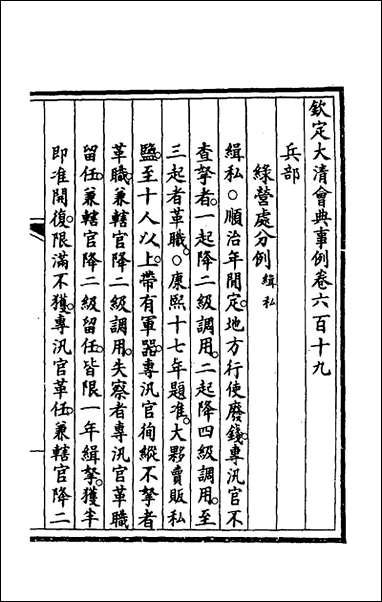 欽定大清會典事例卷六百十九
兵部
綠營處分例緝私
緝私○順治年閒定。地方行使廢錢。專汛官不
查拏者。一起降二級調用。二起降四級調用。至
三起者革職。○康熙十七年題准。大夥賣販私
鹽。至十人以上。帶有軍器。專汛官徇縱不拏者
革職。兼轄官降二級調用。失察者專汛官革職
留任。兼轄官降二級留任。皆限一年緝拏。獲半
即准開復。限滿不獲。專汛官革任。兼轄官降二